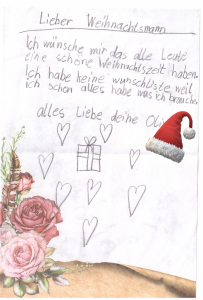 Lieber Weihnachtsmann
Ich wünsche mir das alle Leute
eine schöne Weihnachtszeit haben.
Ich habe keine wunschliste weil
ich schon alles habe was ich brauche.
alles Liebe deine